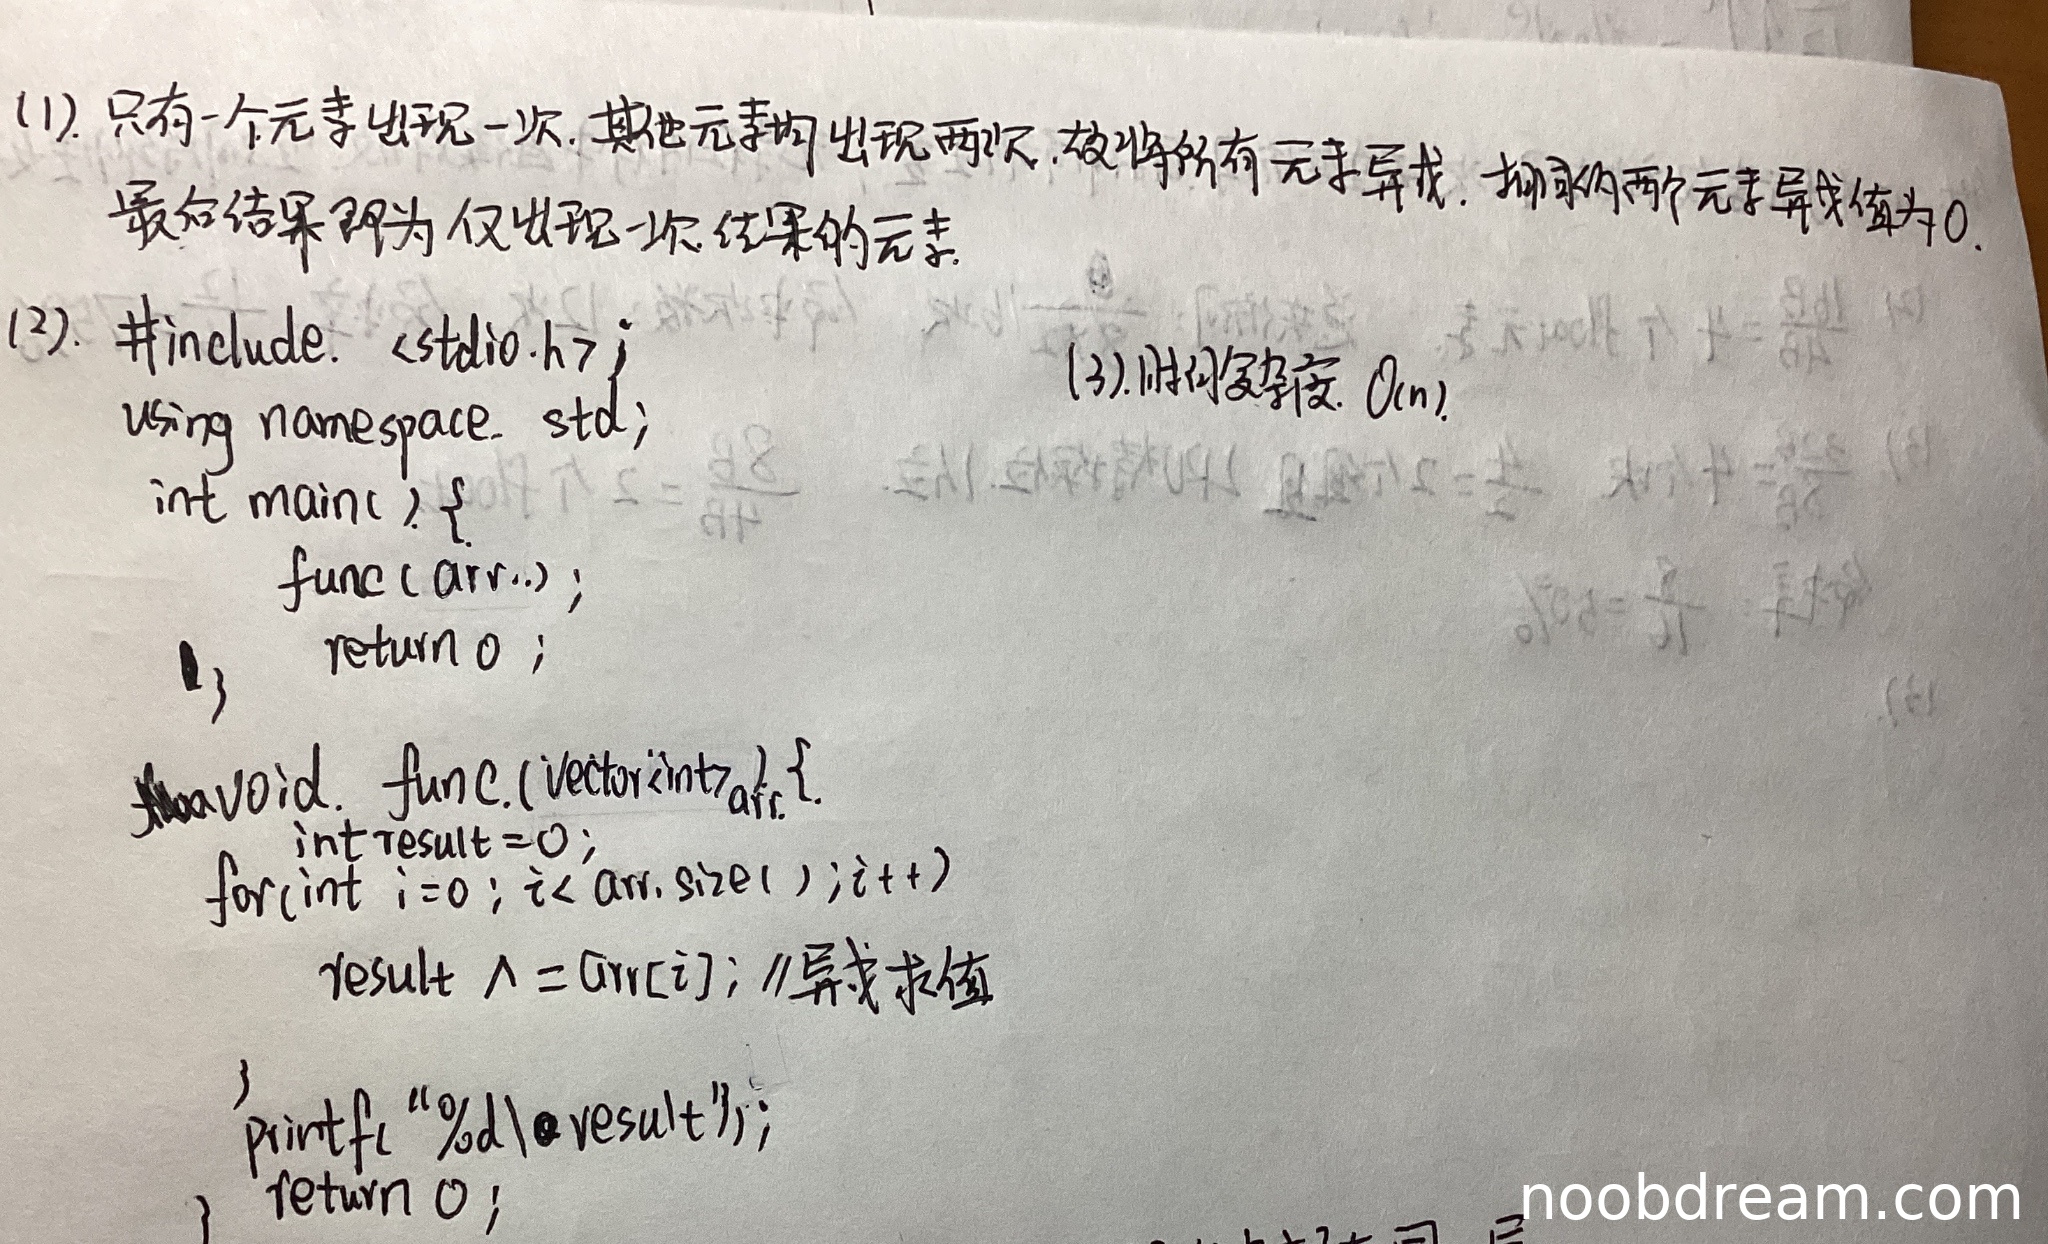 (1). 只有一个元素出现一次.其他元素均出现两次.故将所有元素异或.相同的两个元素异或值为0.
最后结果即为仅出现一次结果的元素.
(2). #include. <stdio.h>;
using namespace std;
int main( ) {
func(arr..);
return 0 ;
}
(3).时间复杂度. O(n).
void. func.(vector<int>arr.) {
int result = 0;
for(int i=0 ; i< arr.size( ) ; i++)
result ^ = arr[i] ; //异或求值
}
printf( "%d\ result");
return 0 ;
}
noobdream.com